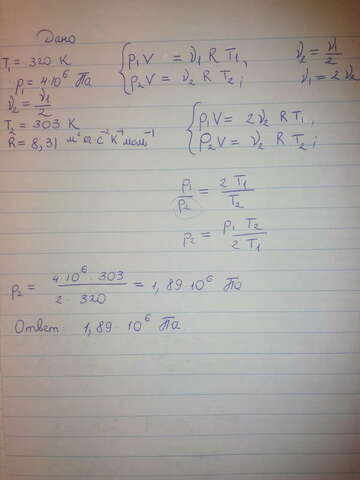 Дано
T₁ = 320 K
p₁ = 4·10⁶ Па
ν₂ = ν₁/2
T₂ = 303 K
R = 8,31 м² кг с⁻² К⁻¹ моль⁻¹
{ p₁V = ν₁ R T₁,
p₂V = ν₂ R T₂;
ν₂ = ν₁/2
ν₁ = 2ν₂
{ p₁V = 2ν₂ R T₁,
p₂V = ν₂ R T₂;
p₁/p₂ = 2T₁/T₂
p₂ = p₁T₂/2T₁
p₂ = 4·10⁶·303/2·320 = 1,89·10⁶ Па
Ответ: 1,89·10⁶ Па.